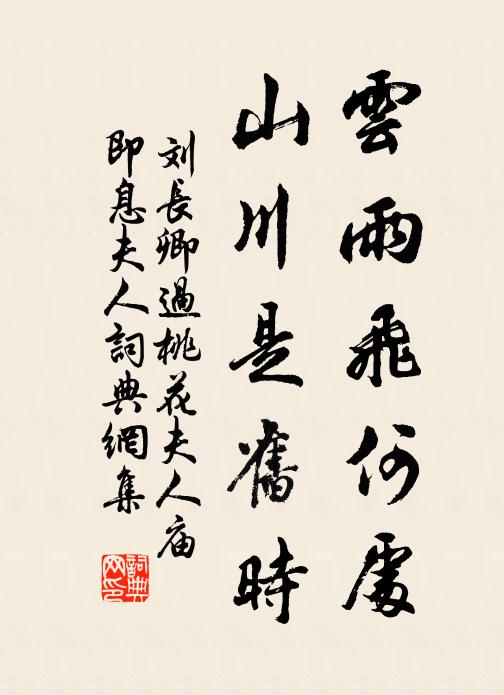 雲雨飛何處
山川是舊時
刘長卿過桃花夫人庙
即息夫人詞典網集
詞典
网印